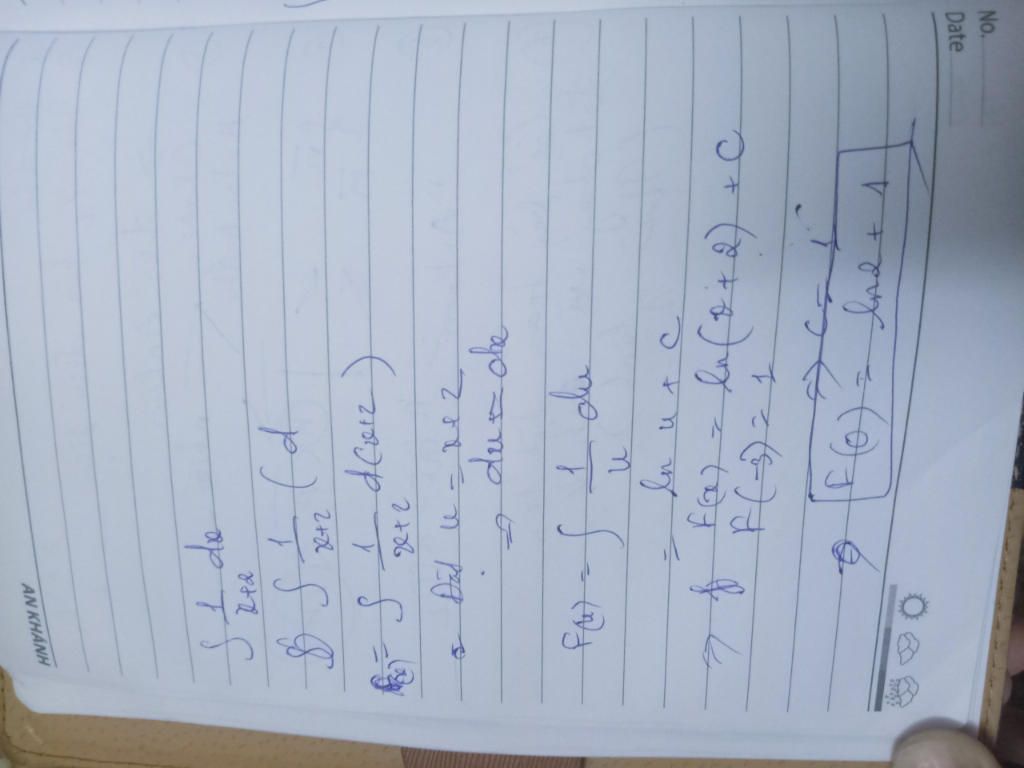 No.
Date
AN KHÁNH
∫ 1/(x+2) dx
∫ 1/(x+2) (d
F(x) = ∫ 1/(x+2) d(x+2)
Đặt u = x+2
⇒ du = dx
F(u) = ∫ 1/u du
= ln u + C
⇒ F(x) = ln(x+2) + C
F(-3) = 1
⇒ C = 1
F(0) = ln2 + 1